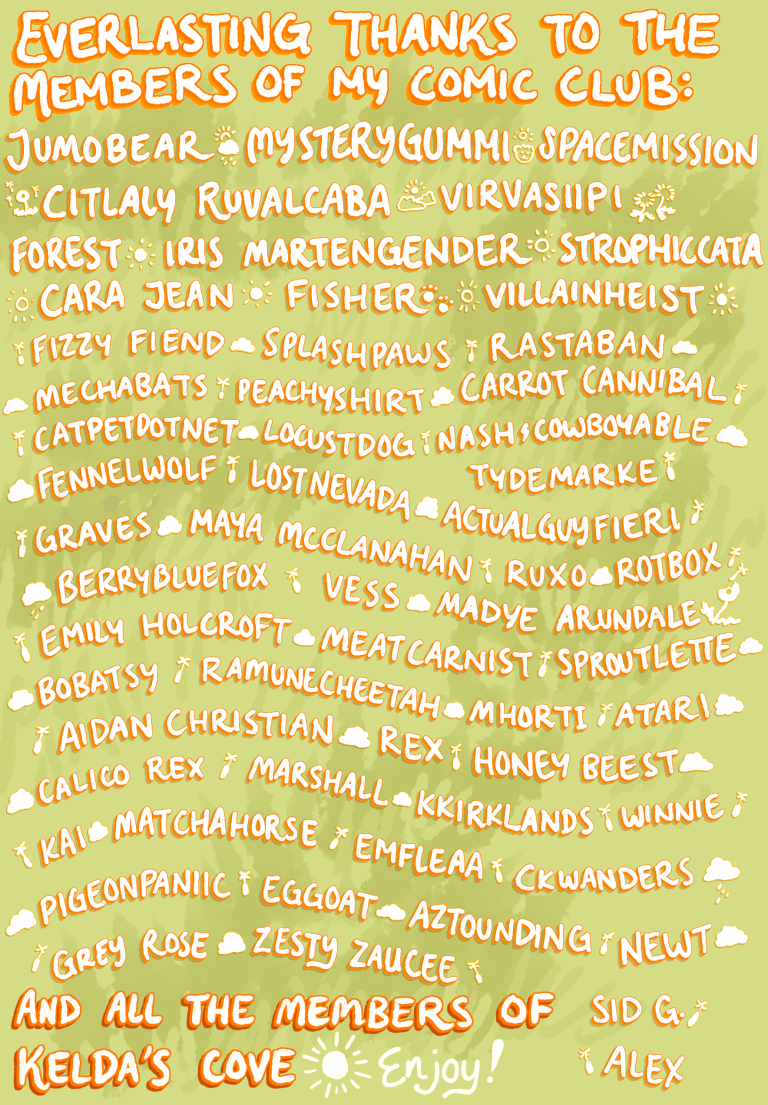 EVERLASTING THANKS TO THE
MEMBERS OF MY COMIC CLUB:
JUMOBEAR MYSTERYGUMMI SPACEMISSION
CITLALY RUVALCABA VIRVASIIPI
FOREST IRIS MARTENGENDER STROPHICCATA
CARA JEAN FISHER VILLAINHEIST
FIZZY FIEND SPLASHPAWS RASTABAN
MECHABATS PEACHYSHIRT CARROT CANNIBAL
CATPETDOTNET LOCUSTDOG NASH COWBOYABLE
FENNELWOLF LOSTNEVADA TYDEMARKE
GRAVES MAYA MCCLANAHAN ACTUALGUYFIERI
BERRYBLUEFOX VESS RUXO ROTBOX
EMILY HOLCROFT MADYE ARUNDALE
BOBATSY MEATCARNIST SPROUTLETTE
RAMUNECHEETAH MHORTI ATARI
AIDAN CHRISTIAN REX HONEY BEEST
CALICO REX MARSHALL KKIRKLANDS WINNIE
KAI MATCHAHORSE EMFLEAA CKWANDERS
PIGEONPANIIC EGGOAT AZTOUNDING NEWT
GREY ROSE ZESTY ZAUCEE
AND ALL THE MEMBERS OF SID G.
KELDA'S COVE Enjoy! ALEX